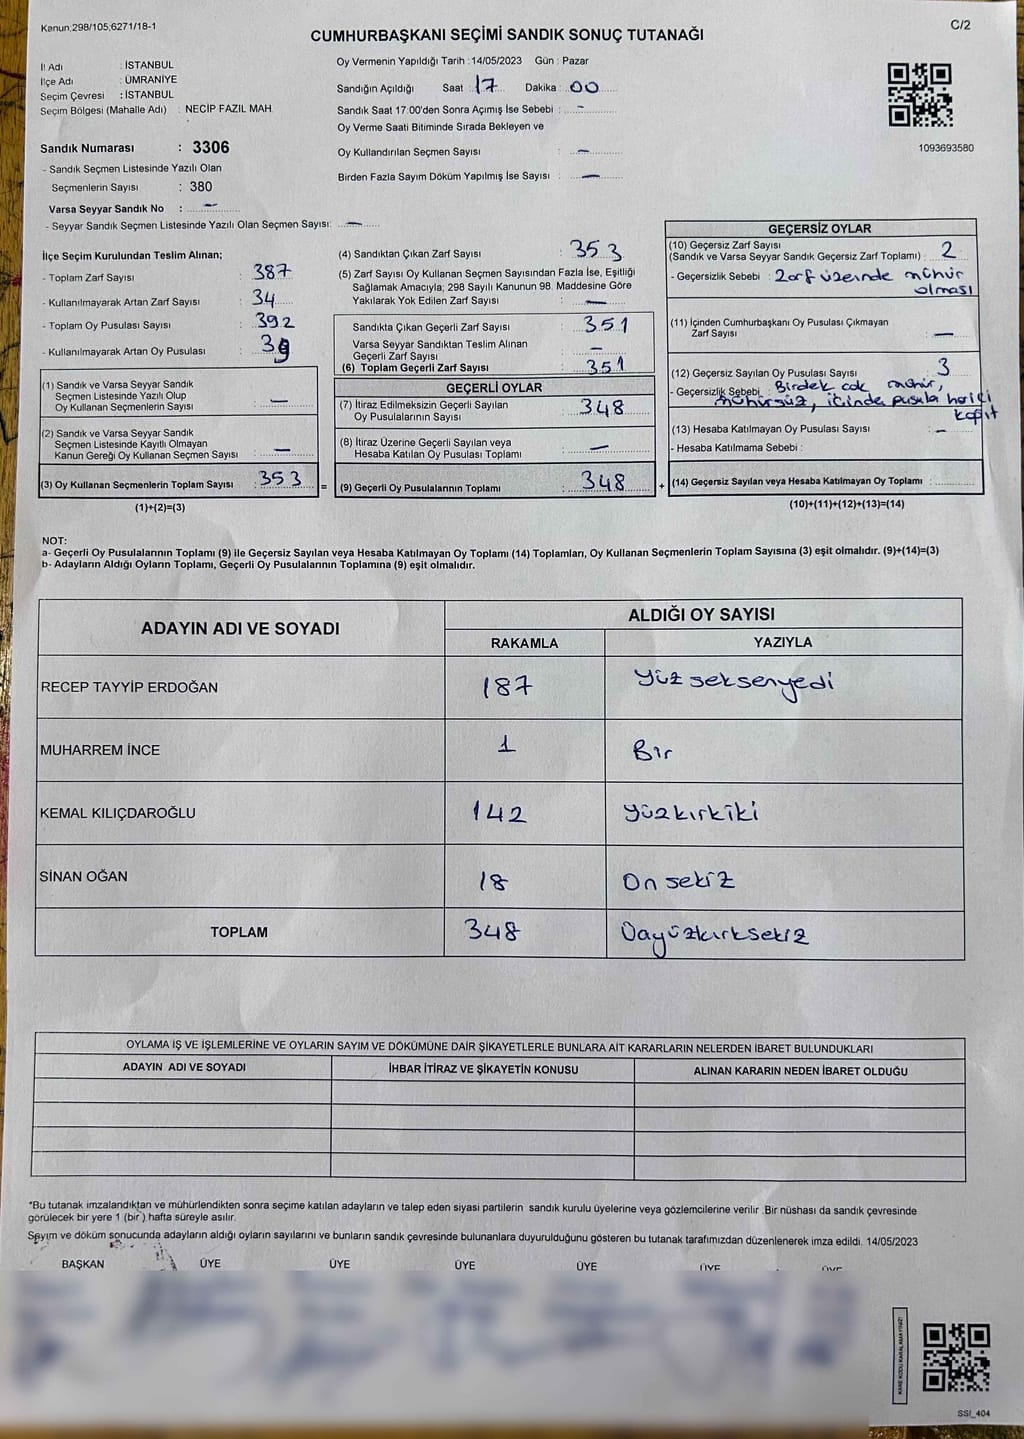 Kanun:298/105;6271/18-1
C/2
CUMHURBAŞKANI SEÇİMİ SANDIK SONUÇ TUTANAĞI
İl Adı : İSTANBUL
İlçe Adı : ÜMRANİYE
Seçim Çevresi : İSTANBUL
Seçim Bölgesi (Mahalle Adı) : NECİP FAZIL MAH.
Sandık Numarası : 3306
- Sandık Seçmen Listesinde Yazılı Olan
Seçmenlerin Sayısı : 380
Varsa Seyyar Sandık No : —
- Seyyar Sandık Seçmen Listesinde Yazılı Olan Seçmen Sayısı: —
Oy Vermenin Yapıldığı Tarih :14/05/2023 Gün : Pazar
Sandığın Açıldığı Saat : 17 Dakika : 00
Sandık Saat 17.00'den Sonra Açımış İse Sebebi : -
Oy Verme Saati Bitiminde Sırada Bekleyen ve
Oy Kullandırılan Seçmen Sayısı : —
Birden Fazla Sayım Döküm Yapılmış İse Sayısı : —
1093693580
İlçe Seçim Kurulundan Teslim Alınan;
- Toplam Zarf Sayısı : 387
- Kullanılmayarak Artan Zarf Sayısı : 34
- Toplam Oy Pusulası Sayısı : 392
- Kullanılmayarak Artan Oy Pusulası : 39
(1) Sandık ve Varsa Seyyar Sandık
Seçmen Listesinde Yazılı Olup
Oy Kullanan Seçmenlerin Sayısı : —
(2) Sandık ve Varsa Seyyar Sandık
Seçmen Listesinde Kayıtlı Olmayan
Kanun Gereği Oy Kullanan Seçmen Sayısı : —
(3) Oy Kullanan Seçmenlerin Toplam Sayısı : 353 =
(1)+(2)=(3)
(4) Sandıktan Çıkan Zarf Sayısı : 353
(5) Zarf Sayısı Oy Kullanan Seçmen Sayısından Fazla İse, Eşitliği
Sağlamak Amacıyla; 298 Sayılı Kanunun 98. Maddesine Göre
Yakılarak Yok Edilen Zarf Sayısı : —
Sandıkta Çıkan Geçerli Zarf Sayısı : 351
Varsa Seyyar Sandıktan Teslim Alınan
Geçerli Zarf Sayısı : —
(6) Toplam Geçerli Zarf Sayısı : 351
GEÇERLİ OYLAR
(7) İtiraz Edilmeksizin Geçerli Sayılan
Oy Pusulalarının Sayısı : 348
(8) İtiraz Üzerine Geçerli Sayılan veya
Hesaba Katılan Oy Pusulası Toplamı : —
(9) Geçerli Oy Pusulalarının Toplamı : 348 +
GEÇERSİZ OYLAR
(10) Geçersiz Zarf Sayısı
(Sandık ve Varsa Seyyar Sandık Geçersiz Zarf Toplamı) : 2
- Geçersizlik Sebebi : Zarf üzerinde mühür
olması
(11) İçinden Cumhurbaşkanı Oy Pusulası Çıkmayan
Zarf Sayısı : —
(12) Geçersiz Sayılan Oy Pusulası Sayısı : 3
- Geçersizlik Sebebi : Birdek cok mühür,
mühürsüz, içinde pusula harici
kağıt
(13) Hesaba Katılmayan Oy Pusulası Sayısı : —
- Hesaba Katılmama Sebebi :
(14) Geçersiz Sayılan veya Hesaba Katılmayan Oy Toplamı :
(10)+(11)+(12)+(13)=(14)
NOT:
a- Geçerli Oy Pusulalarının Toplamı (9) ile Geçersiz Sayılan veya Hesaba Katılmayan Oy Toplamı (14) Toplamları, Oy Kullanan Seçmenlerin Toplam Sayısına (3) eşit olmalıdır. (9)+(14)=(3)
b- Adayların Aldığı Oyların Toplamı, Geçerli Oy Pusulalarının Toplamına (9) eşit olmalıdır.
ADAYIN ADI VE SOYADI
ALDIĞI OY SAYISI
RAKAMLA YAZIYLA
RECEP TAYYİP ERDOĞAN 187 Yüz seksenyedi
MUHARREM İNCE 1 Bir
KEMAL KILIÇDAROĞLU 142 Yüzkırkiki
SİNAN OĞAN 18 On sekiz
TOPLAM 348 Üçyüzkırksekiz
OYLAMA İŞ VE İŞLEMLERİNE VE OYLARIN SAYIM VE DÖKÜMÜNE DAİR ŞİKAYETLERLE BUNLARA AİT KARARLARIN NELERDEN İBARET BULUNDUKLARI
ADAYIN ADI VE SOYADI İHBAR İTİRAZ VE ŞİKAYETİN KONUSU ALINAN KARARIN NEDEN İBARET OLDUĞU
*Bu tutanak imzalandıktan ve mühürlendikten sonra seçime katılan adayların ve talep eden siyasi partilerin sandık kurulu üyelerine veya gözlemcilerine verilir .Bir nüshası da sandık çevresinde
görülecek bir yere 1 (bir ) hafta süreyle asılır.
Sayım ve döküm sonucunda adayların aldığı oyların sayılarını ve bunların sandık çevresinde bulunanlara duyurulduğunu gösteren bu tutanak tarafımızdan düzenlenerek imza edildi. 14/05/2023
BAŞKAN ÜYE ÜYE ÜYE ÜYE ÜYE ÜYE
KARE KODU KARALAMAYINIZ!
SSI_404